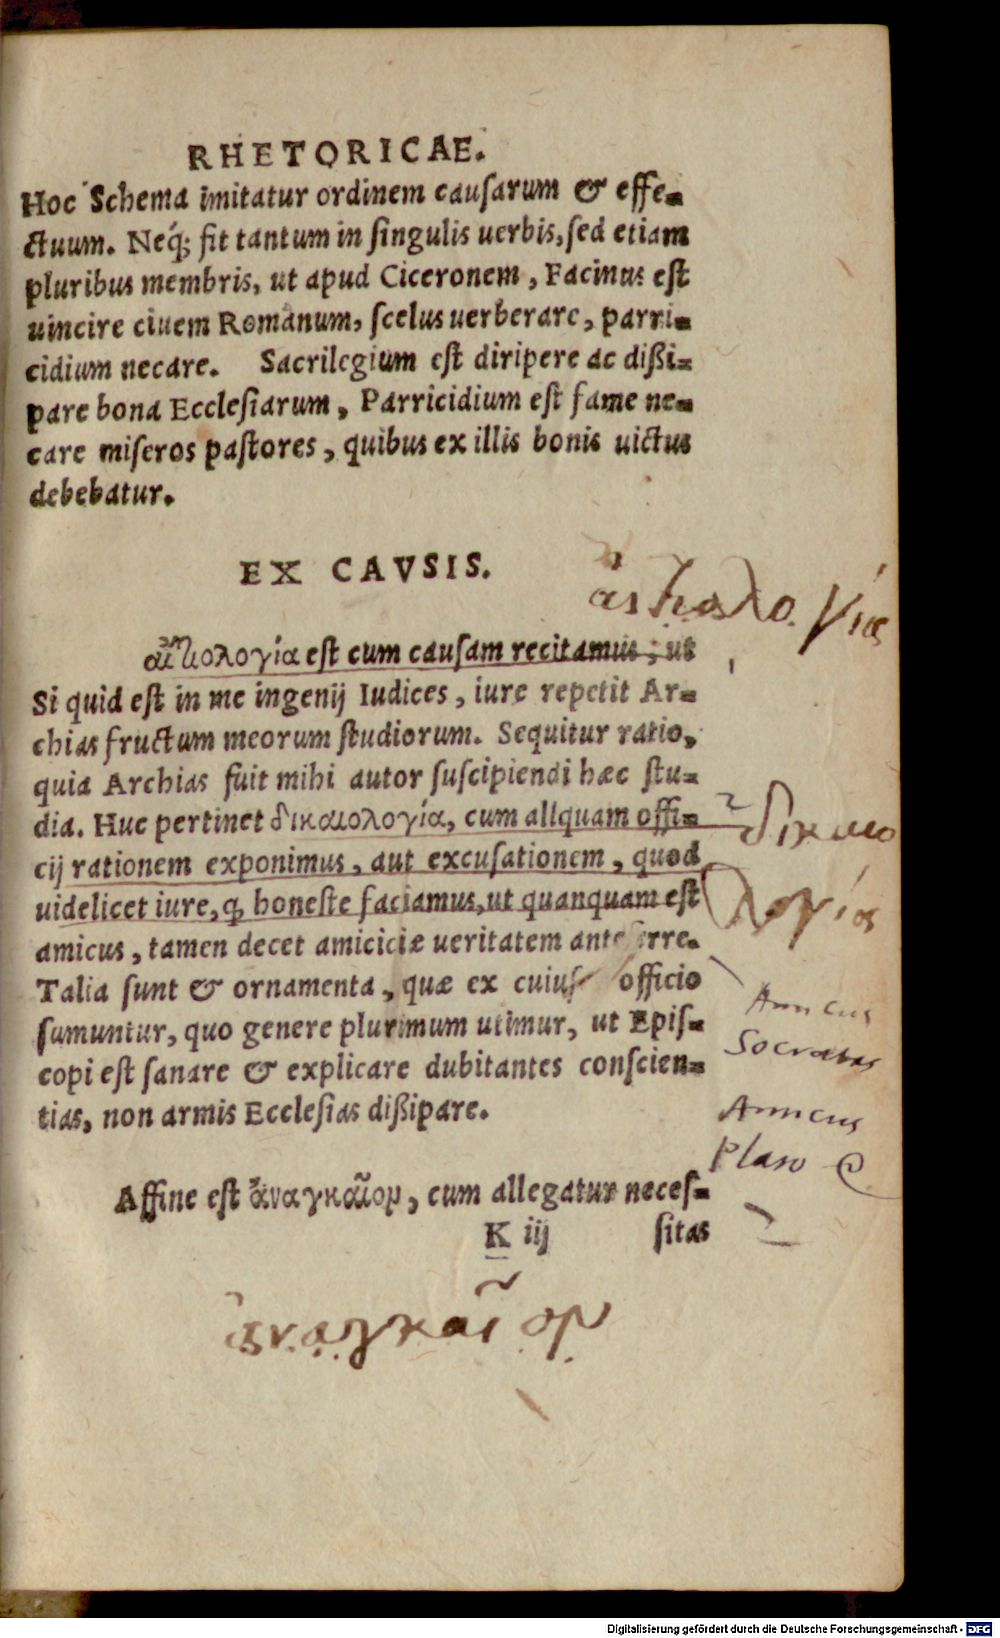 RHETORICAE.
Hoc Schema imitatur ordinem causarum & effe-
ctuum. Neq; fit tantum in singulis uerbis, sed etiam
pluribus membris, ut apud Ciceronem, Facinus est
uincire ciuem Romanum, scelus uerberare, parri-
cidium necare. Sacrilegium est diripere ac dißi-
pare bona Ecclesiarum, Parricidium est fame ne-
care miseros pastores, quibus ex illis bonis uictus
debebatur.
EX CAVSIS.
αἰτιολογία
αἰτιολογία est cum causam recitamus, ut
Si quid est in me ingenij Iudices, iure repetit Ar-
chias fructum meorum studiorum. Sequitur ratio,
quia Archias fuit mihi autor suscipiendi hæc stu-
dia. Huc pertinet δικαιολογία, cum aliquam offi-
cij rationem exponimus, aut excusationem, quod
uidelicet iure, q; honeste faciamus, ut quanquam est
amicus, tamen decet amiciciæ ueritatem anteferre.
Talia sunt & ornamenta, quæ ex cuius officio
sumuntur, quo genere plurimum utimur, ut Epis-
copi est sanare & explicare dubitantes conscien-
tias, non armis Ecclesias dißipare.
δικαιο
λογία
Amicus
Socrates
Amicus
Plato
Affine est ἀναγκαῖον, cum allegatur neces-
K iij sitas
ἀναγκαῖον
Digitalisierung gefördert durch die Deutsche Forschungsgemeinschaft - DFG